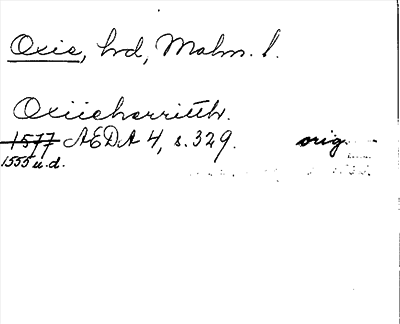 Oxie, hd, Malm. l.
Oxiieherritth.
1577 AEDA 4, s. 329. orig.
1555 u.d.